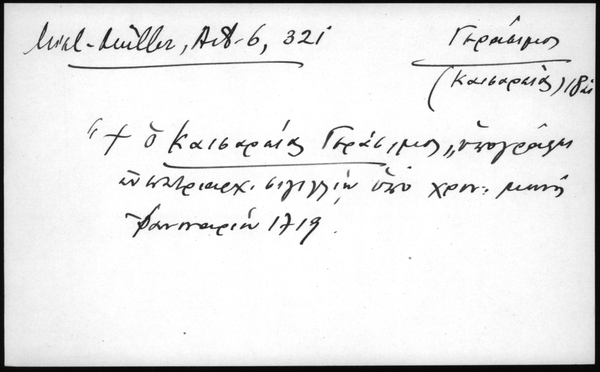 Mikl-Müller, Act-6, 321
Γεράσιμος
(Καισαρείας) 18 αι
"+ ὁ Καισαρείας Γεράσιμος„ ὑπογράφει
ἐν πατριαρχ. σιγιλλίῳ ὑπὸ χρον: μηνὶ
Ἰαννουαρίῳ 1719.